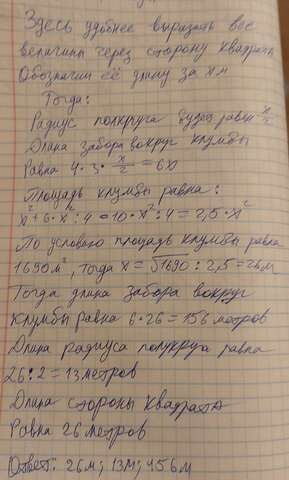 Здесь удобнее выразить все
величины через сторону квадрата
Обозначим её длину за x м
Тогда:
Радиус полкруга будет равен x/2
Длина забора вокруг клумбы
Равна 4 · 3 · x/2 = 6x
Площадь клумбы равна:
x² + 6 · x² : 4 = 10 · x² : 4 = 2,5 · x²
По условию площадь клумбы равна
1690 м², тогда x = √1690 : 2,5 = 26 м
Тогда длина забора вокруг
клумбы равна 6 · 26 = 156 метров
Длина радиуса полукруга равна
26 : 2 = 13 метров
Длина стороны квадрата
Равна 26 метров
Ответ: 26 м; 13 м; 156 м